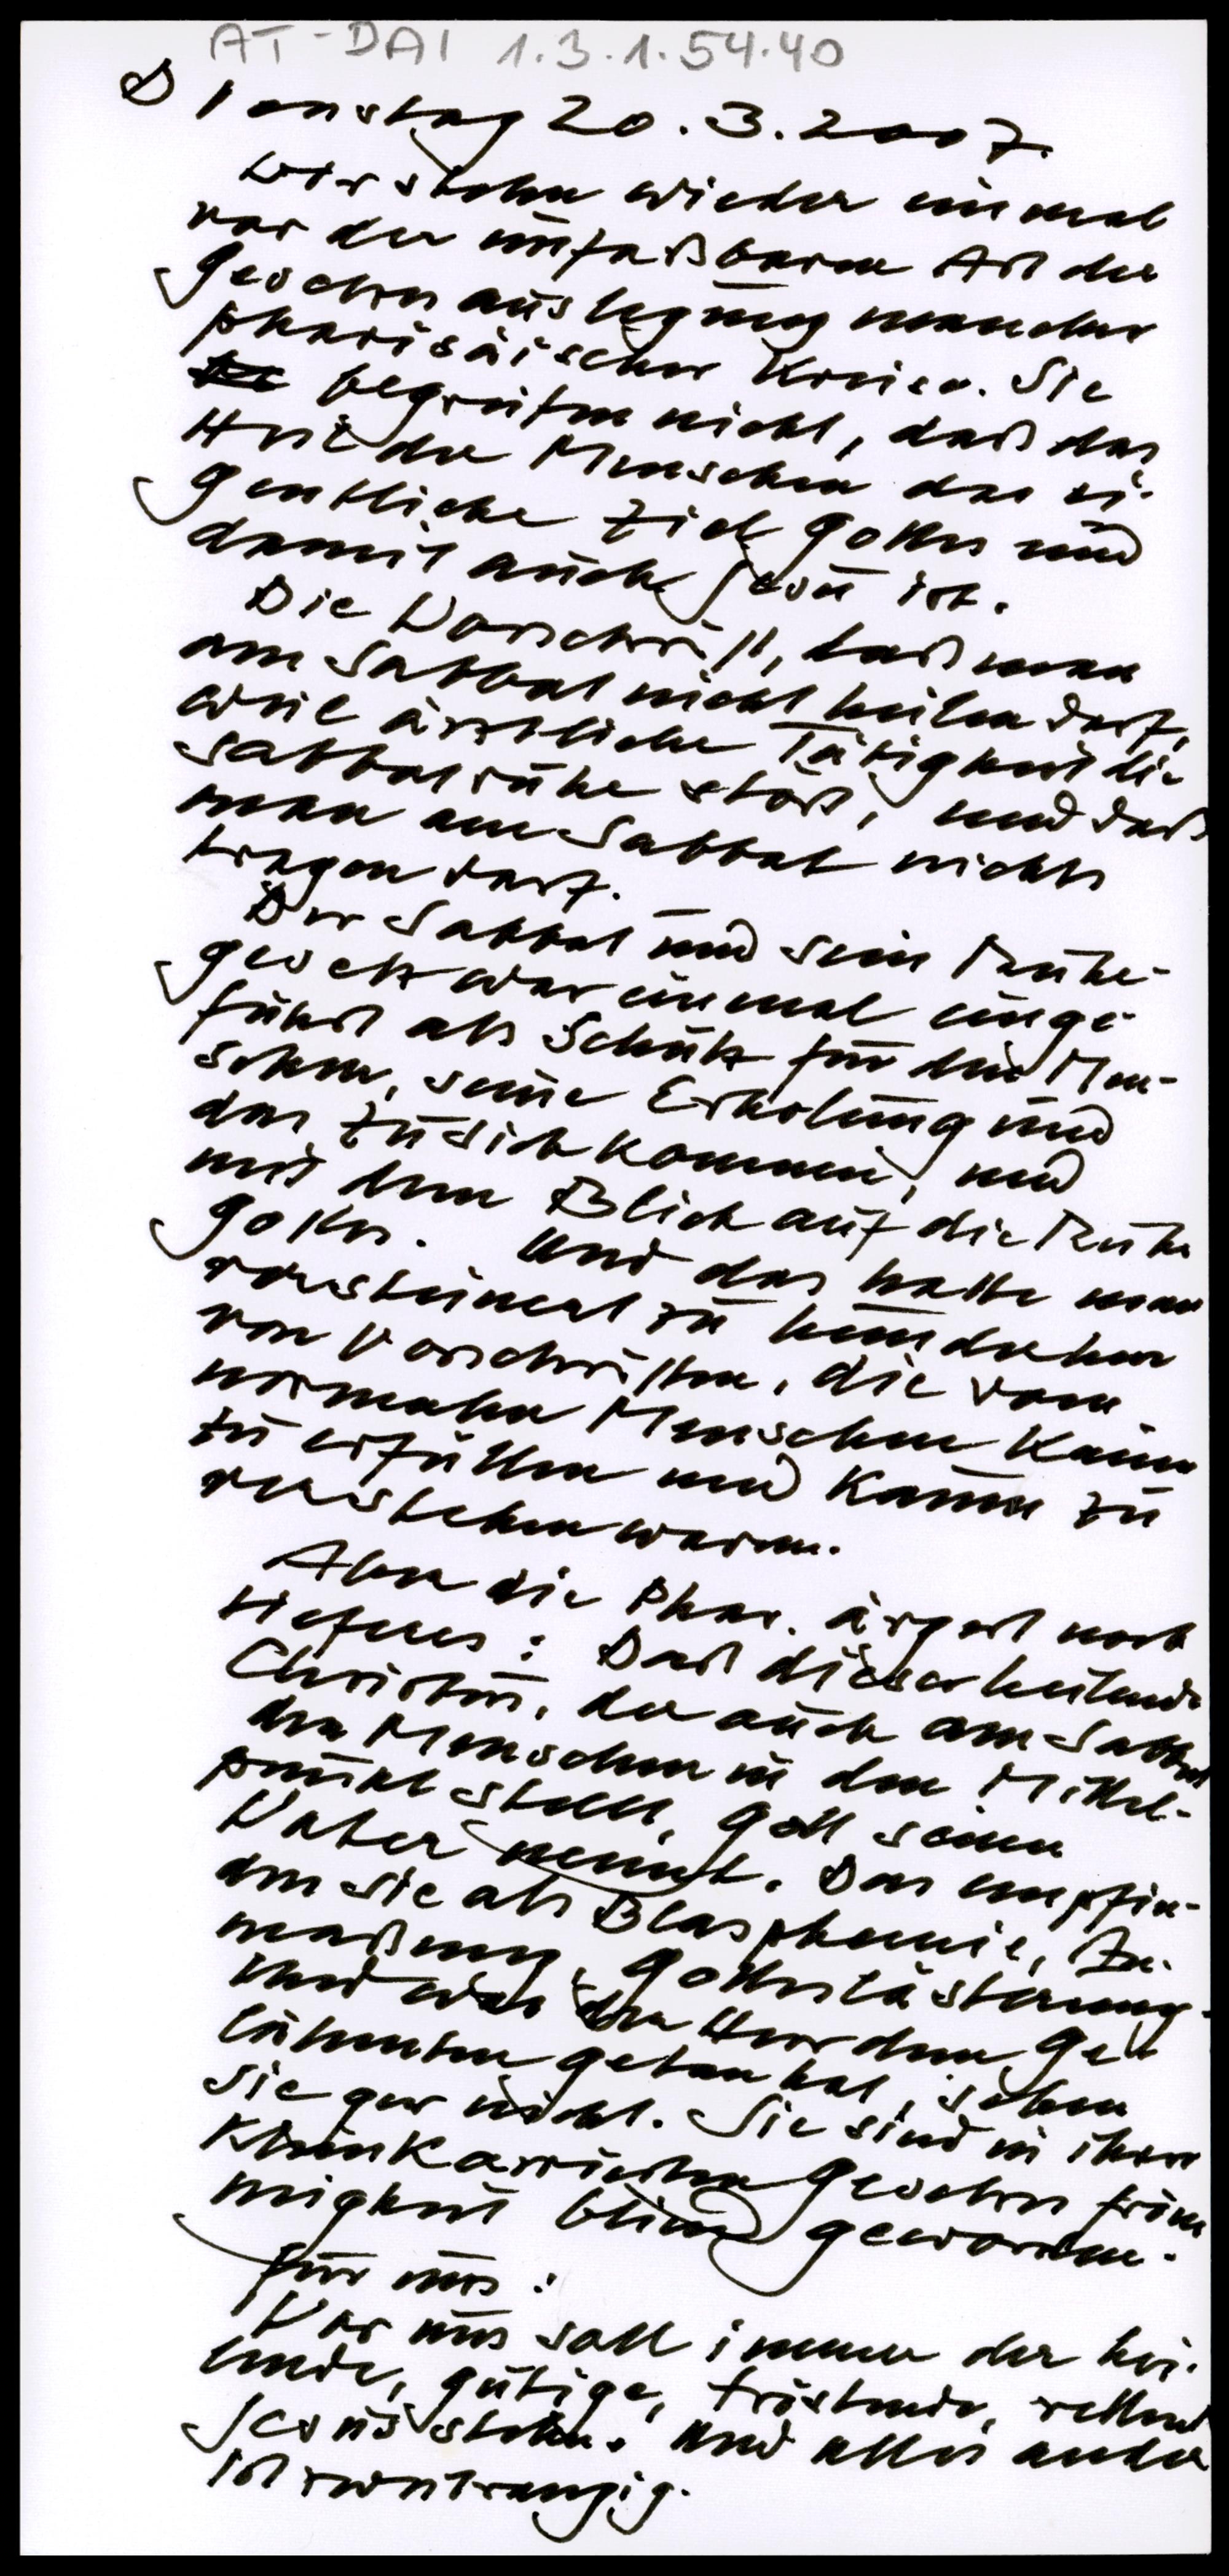 AT-DAI 1.3.1.54.40
Dienstag 20.3.2007.
Wir stehn wieder einmal
vor der unfaßbaren Art der
Gesetzesauslegung mancher
pharisäischer Kreise. Sie
begreifen nicht, daß das
Heil der Menschen das ei-
gentliche Ziel Gottes und
damit auch Jesu ist.
Die Vorschrift, daß man
am Sabbat nicht heilen darf,
weil ärztliche Tätigkeit die
Sabbatruhe stört, und daß
man am Sabbat nichts
tragen darf.
Der Sabbat und sein Ruhe-
gesetz war einmal einge-
führt als Schutz für den Men-
schen, seine Erholung und
das zusichkommen, und
mit dem Blick auf die Ruhe
Gottes. Und das hatte man
versteinert zu hunderten
von Vorschriften, die vom
normalen Menschen kaum
zu erfüllen und kaum zu
verstehen waren.
Aber die Phar. ärgert noch
tieferes: Daß dieser heilende
Christus, der auch am Sabbat
den Menschen in den Mittel-
punkt stellt, Gott seinen
Vater nennt. Das empfin-
den sie als Blasphemie, An-
maßung, Gotteslästerung.
Und was der Herr dem Ge-
lähmten getan hat, sehen
sie gar nicht. Sie sind in ihrer
kleinkarierten Gesetzes fröm
migkeit blind geworden.
Für uns:
Vor uns soll immer der hei-
lende, gütige, tröstende, rettende
Jesus stehn. Und alles andere
ist zweitrangig.